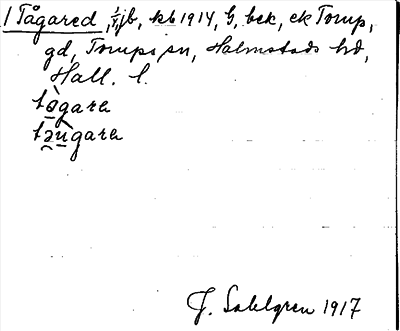 1 Tågared, 1/1 jb, kb 1914, G, bek, ek Torup,
gd, Torups sn, Halmstads hd,
Hall. l.
tògara
təùgara
J. Sahlgren 1917